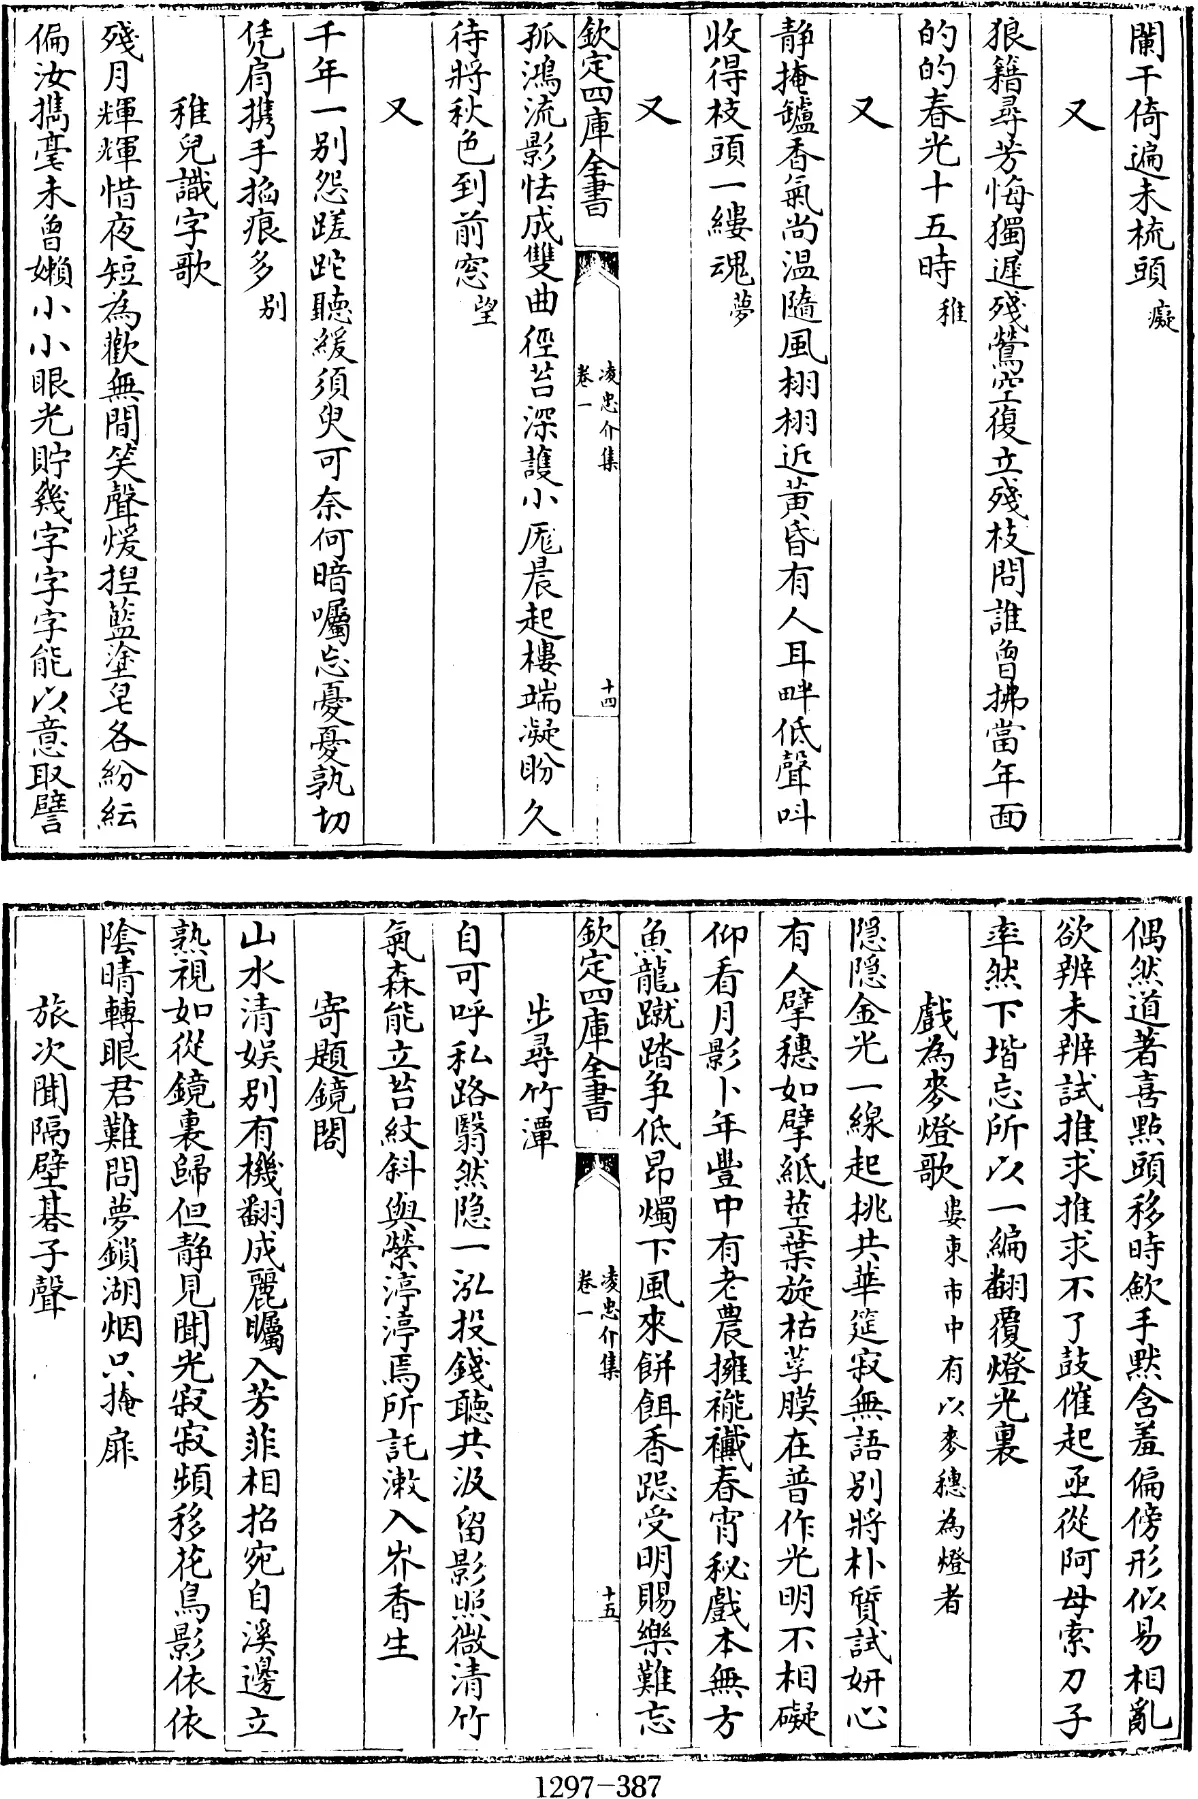 闌干倚遍未梳頭癡
又
狼籍尋芳悔獨遲殘鶯空復立殘枝問誰曾拂當年面
的的春光十五時稚
又
静掩鑪香氣尚温隨風栩栩近黄昏有人耳畔低聲叫
收得枝頭一縷魂夢
又
欽定四庫全書
凌忠介集
卷一
十四
孤鴻流影怯成雙曲徑苔深護小厖晨起樓端凝盼久
待將秋色到前窓望
又
千年一别怨蹉跎聽緩須臾可奈何暗囑忘憂憂孰切
凭肩携手搯痕多别
稚兒識字歌
殘月輝輝惜夜短為歡無間笑聲煖揑藍塗皂各紛紜
偏汝擕毫未曾嬾小小眼光貯幾字字字能以意取譬
偶然道著喜點頭移時歛手默含羞偏傍形似易相亂
欲辨未辨試推求推求不了鼓催起亟從阿母索刀子
率然下堦忘所以一編翻覆燈光裏
戲為麥燈歌婁東市中有以麥穗為燈者
隠隠金光一線起挑共華筵寂無語别將朴質試妍心
有人擘穗如擘紙莖葉旋枯莩膜在普作光明不相礙
仰看月影卜年豐中有老農擁襹襶春宵秘戲本無方
魚龍蹴踏争低昂燭下風來餅餌香跽受明賜樂難忘
欽定四庫全書
凌忠介集
卷一
十五
步尋竹潭
自可呼私路翳然隐一泓投錢聽共汲留影照微清竹
氣森能立苔紋斜與縈渟渟焉所託漱入齐香生
寄題鏡閣
山水清娱别有機翻成麗矚入芳菲相招宛自溪邊立
熟視如從鏡裏歸但静見聞光寂寂頻移花鳥影依依
陰晴轉眼君難問夢鎖湖烟只掩扉
旅次聞隔壁碁子聲
1297-387